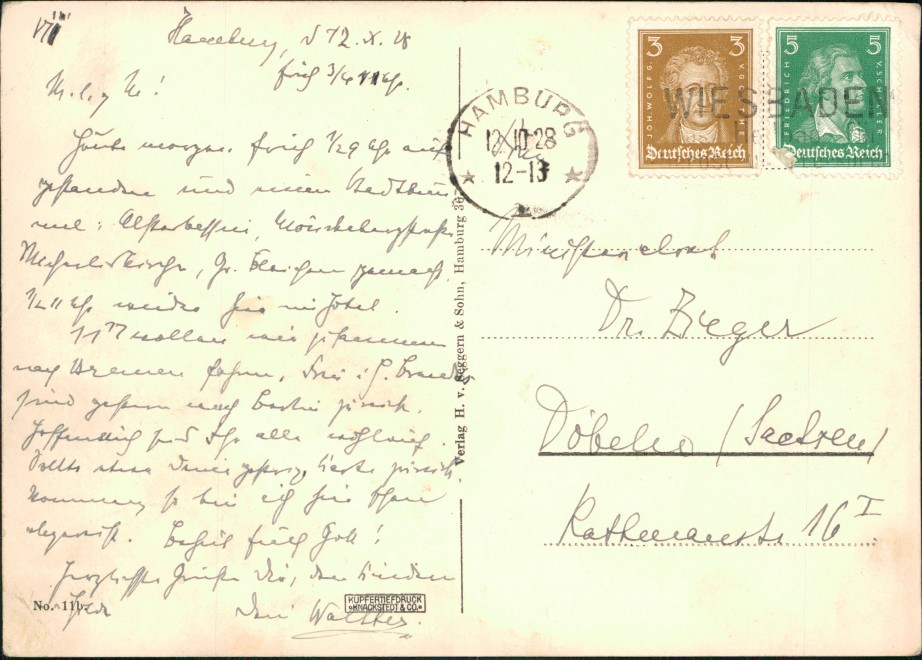 VIII
Hamburg, d 12. X. 28
früh 3/4 11 Uhr.
M. l. g. M!
Heute morgen früh 1/2 9 Uhr auf-
gestanden und einen Stadtbum-
mel: Alsterbassin, Mönckebergstraße,
Michaeliskirche, Gr. Bleichen gemacht.
1/2 11 Uhr wieder hier im Hotel.
wollen wir zusammen
nach Bremen fahren,
sind gestern nach Berlin zurück.
Hoffentlich seid Ihr alle wohlauf.
Sollte etwa Deine Karte zurück
kommen, so bin ich hier schon
abgereist. Behüt Euch Gott!
Herzliche Grüße Dir, den Kindern
Dein Walther.
No. 11b.
KUPFERTIEFDRUCK
KNACKSTEDT & CO.
Verlag H. v. Seggern & Sohn, Hamburg 36
HAMBURG
12.10.28
12-13
WIESBADEN
3 3
JOH. WOLFG. V. GOETHE
Deutsches Reich
5 5
FRIEDRICH V. SCHILLER
Deutsches Reich
Ministerialrat
Dr. Zieger
Döbeln (Sachsen)
16 I